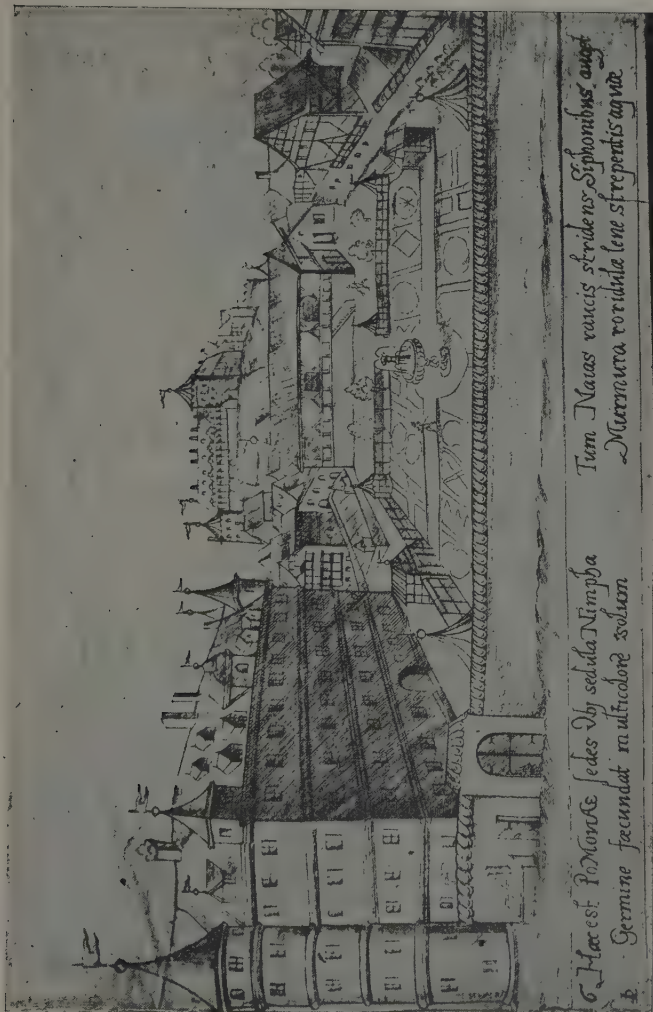 6 Hæc est PoMonæ sedes Vbj sedula Nimpha
Germine fæcundat multicolore solum
Tum Naias raucis stridens Siphonibus auget
Murmura roridulæ lene strepentis aquæ